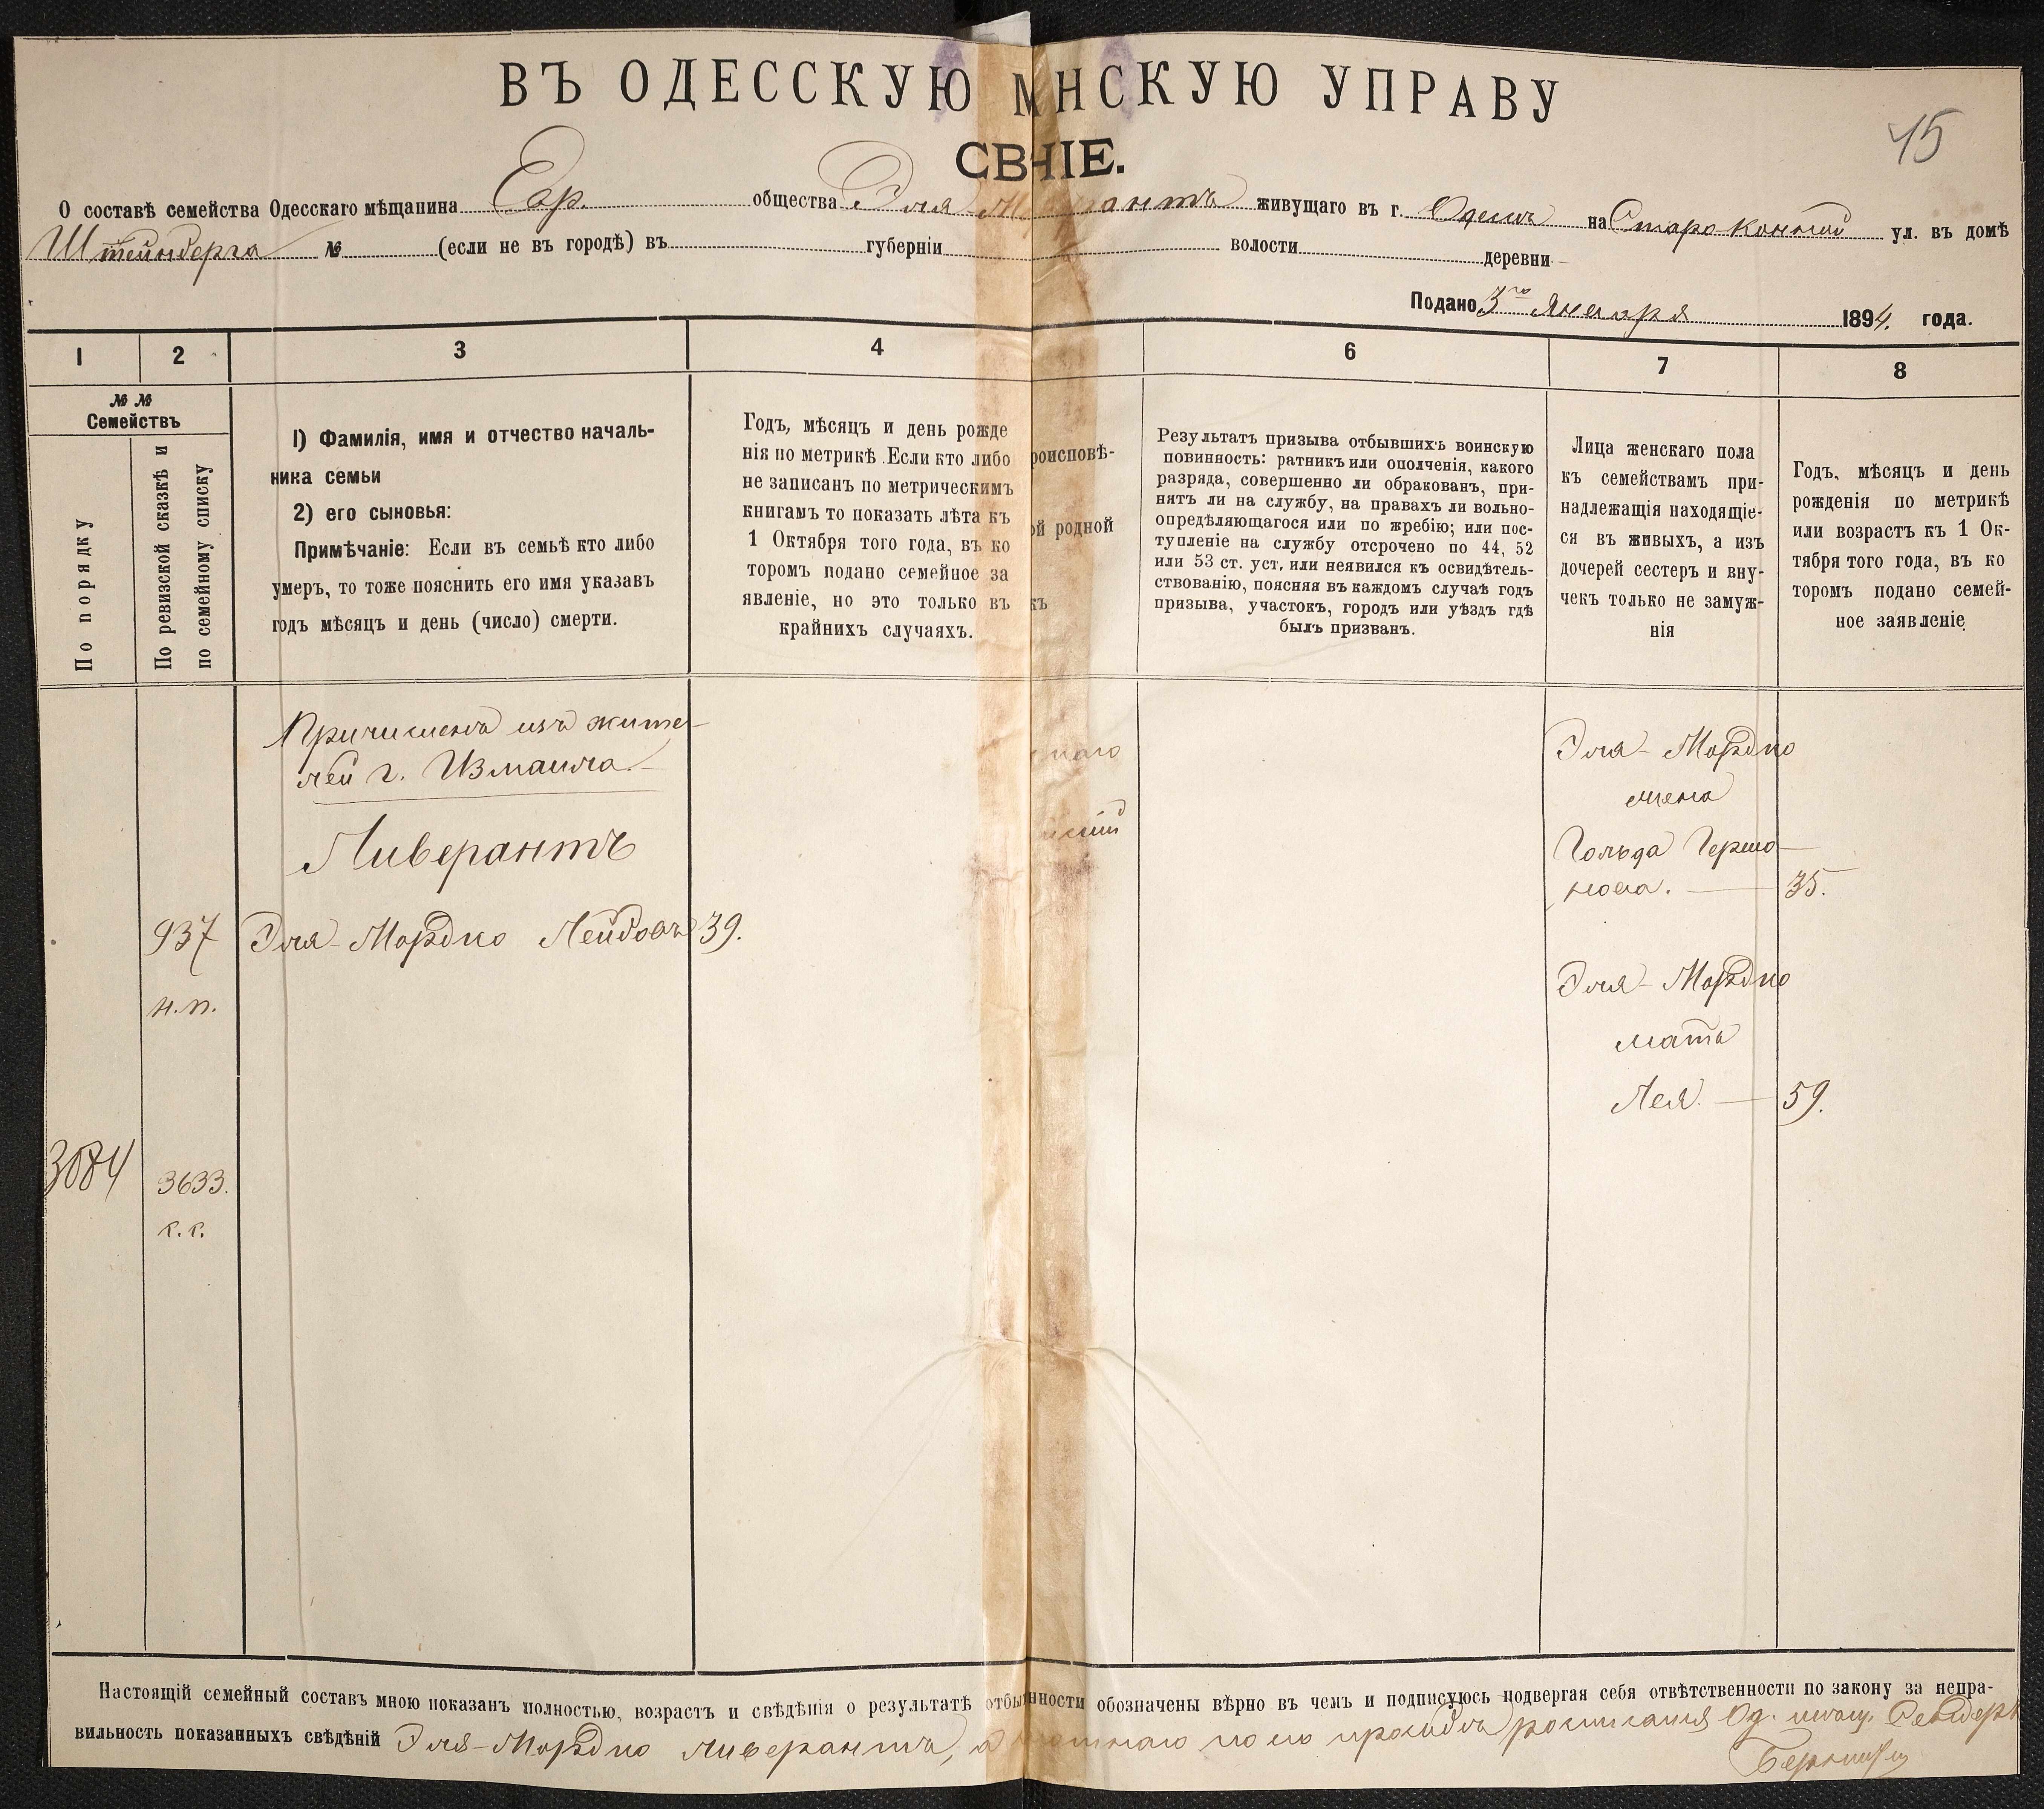 ВЪ ОДЕССКУЮ М НСКУЮ УПРАВУ
45
СВ НІЕ.
О составѣ семейства Одесскаго мѣщанина Евр. общества Эля антъ живущаго въ г. Одессѣ на Старо-Конной ул. въ домѣ
Штейнберга № (если не въ городѣ) въ губерніи волости деревни
Подано 3го Января 1894. года.
1 2 3 4 6 7 8
№ №
Семействъ
По порядку
По ревизской сказкѣ и
по семейному списку
1) Фамилія, имя и отчество началь-
ника семьи
2) его сыновья:
Примѣчаніе: Если въ семьѣ кто либо
умеръ, то тоже пояснить его имя указавъ
годъ мѣсяцъ и день (число) смерти.
Годъ, мѣсяцъ и день рожде
нія по метрикѣ. Если кто либо
не записанъ по метрическимъ
книгамъ то показать лѣта къ
1 Октября того года, въ ко
торомъ подано семейное за
явленіе, но это только въ
крайнихъ случаяхъ.
роисповѣ-
ой родной
къ
Результатъ призыва отбывшихъ воинскую
повинность: ратникъ или ополченія, какого
разряда, совершенно ли обракованъ, при-
нятъ ли на службу, на правахъ ли вольно-
опредѣляющагося или по жребію; или пос-
тупленіе на службу отсрочено по 44, 52
или 53 ст. уст. или неявился къ освидѣтель-
ствованію, поясняя въ каждомъ случаѣ годъ
призыва, участокъ, городъ или уѣздъ гдѣ
былъ призванъ.
Лица женскаго пола
къ семействамъ при-
надлежащія находящіе-
ся въ живыхъ, а изъ
дочерей сестеръ и вну-
чекъ только не замуж-
нія
Годъ, мѣсяцъ и день
рожденія по метрикѣ
или возрастъ къ 1 Ок-
тября того года, въ ко
торомъ подано семей-
ное заявленіе
Причисленъ изъ жите-
лей г. Измаила
Ливерантъ
937 Эля-Мордко Лейбовъ 39.
н.п.
3084
3633.
с.с.
Эля-Мордко
жена
Гольда Гершо-
нова. — 35.
Эля-Мордко
мать
Лея. — 59.
Настоящій семейный составъ мною показанъ полностью, возрастъ и свѣдѣнія о результатѣ отбы нности обозначены вѣрно въ чемъ и подписуюсь подвергая себя отвѣтственности по закону за непра-
вильность показанныхъ свѣдѣній Эля-Мордко Ливерантъ, а по его просьбѣ росписался Од. мѣщ.